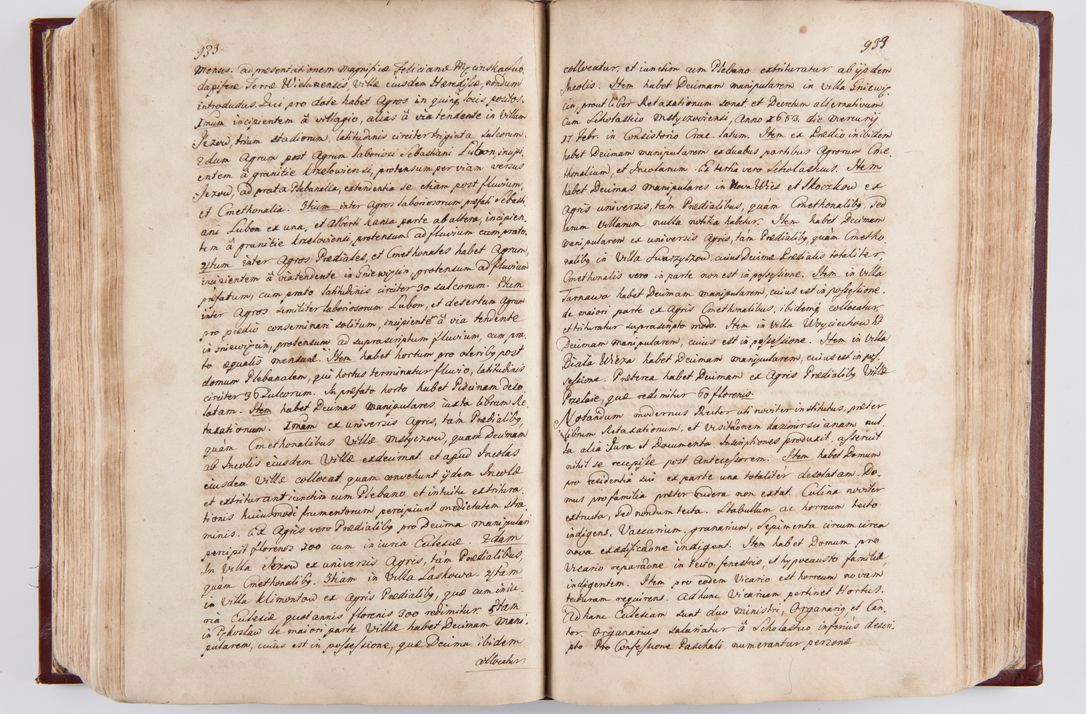 933
mensis. ad praesentationem magnificae Felicianae Męcinska
dapiferae Terrae Wielunensis, Villae eiusdem Haeredissae, nondum
introductus. Qui pro dote habet Agros in quinq locis positos.
Imum incipientem à villagio, alias à via tendente in Villam
Jezow, trium stadiorum, latitudinis circiter triginta sulcorum.
2dum Agrum post Agrum laboriosi Sebastiani Lubon incipi-
entem à granitie Krzelowiensi, protensum per viam versus
Jezow, ad prata Plebanalia, extendentia se etiam post fluvium,
et Cmethonalia. 3tium inter Agros laboriosorum praefati Sebasti
ani Lubon ex una, et Alberti Kania parte ab altera, incipien-
tem à granitie Krzelowiensi, protensum ad fluvium cum prato.
4tum inter Agros Praediales, et Cmethonales habet Agrum,
incipientem à via tendente in Gniewięcin protensum ad fluvium
praefatum, cum prato latitudinis circiter 30 sulcorum. 5tum
inter Agros similiter laboriosorum Lubon, et desertum Agrum
pro praedio conseminari solitum, incipientē à via tendente
in Gniewięcin, protensum ad suprascriptum fluvium, cum pra-
to aequalis mensurae. Item habet hortum pro oleribq post
domum Plebanalem, qui hortus terminatur fluvio, latitudinis
circiter 36 sulcorum. In praefato horto habet Piscinam deso
latam. Item habet Decimas manipulares, iuxta librum Re
taxationum. Imam ex universis Agris, tàm Praedialibq,
quàm Cmethonalibus Villae Mstyczow, quam Decimam
ab Incolis eiusdem Villae exdecimat et apud Incolas
eiusdem Villae collocat, quam convehunt ijdem Incolae
et extriturant iunctim cum Plebano, et intuitu extritura-
tionis huiusmodi frumentorum percipiunt medietatem stra
minis. Ex Agris vero Praedialibq pro Decima manipulari
percipit florenos 200 cum iniuria Ecclesiae. 2dam
In Villa Jezow ex universis Agris, tàm Praedialibus,
quàm Cmethonalibq. 3tiam in Villa Laskowa. 4tam
in Villa Klimontow ex Agris Praedialibq, quae cum iniu-
ria Ecclesiae quotannis florenis 200 redimitur. 5tam
in Przysław de maiori parte Villae habet Decimam mani-
pularem, cuius est in possessione, quae Decima ibidem
collocatur
934
collocatur, et iunctim cum Plebano extrituratur ab ijsdem
Incolis. Item habet Decimam manipularem in Villa Gniewię-
cin, prout liber Retaxationum sonat, et Decretum alternativum
cum Scholastico Mstyzoviensi, Anno 1653. die Mercurij
17 Febr. in Consistorio Crac. latum. Item ex Praedio inibidem
habet Decimam manipularem ex duabus partibus Agrorum Cme-
thonalium, et Incolarum. Ex tertia vero Scholasticus. Item
habet Decimas manipulares in Nova Wieś et Skoczkow ex
Agris universis, tàm Praedialibus, quàm Cmethonalibq, sed
earum Villarum nulla notitia habetur. Item habet Decimam
manipularem ex universis Agris, tàm Praedialibq, quàm Cmetho-
nalibq in Villa Swarzyszow, cuius Decima Praedialis totaliter,
Cmethonalis vero in parte non est in possessione. Item in Villa
Tarnawa habet Decimam manipularem, cuius est in possessione.
de maiori parte ex Agris Cmethonalibus, ibidemq collocatur,
et trituratur suprascripto modo. Item in Villa Woyciechow ht
Decimam manipularem, cuius est in possessione. Item in Villa
Biała Wieża habet Decimam manipularem, cuius est in pos-
sessione. Praeterea habet Decimam ex Agris Praedialibq Villae
Przełaie, quae redimitur 60 florenis.
Notandum modernus Rector uti noviter institutus, praeter
librum Retaxationum, et Visitaōnem Kazimirscianam nul-
la alia Jura et Documenta Inscriptiones produxit, asseruit
nihil se recepisse post Antecessorem. Item habet Domum
pro residentia sui ex parte una totalitèr desolatam. Do-
mus pro familia praeter rudera non extat. Culina noviter
extructa, sed nondum tecta. Stabullum ac horreum tecto
indigens. Vaccarium, granarium, Sepimenta circum circa
nova exaedificaōne indigent. Item habet Domum pro
Vicario reparaōne in tecto, fenestris, et hypocausto familiae
indigentem. Item pro eodem Vicario est horreum novam
tecturam requirens. Ad hunc Vicarium pertinet Hortus.
Ad hanc Ecclesiam sunt duo ministri, Organariq et Can-
tor. Organarius salariatur à Scholastico inferius descri-
pto Pro Confessione Paschali numerantur personae